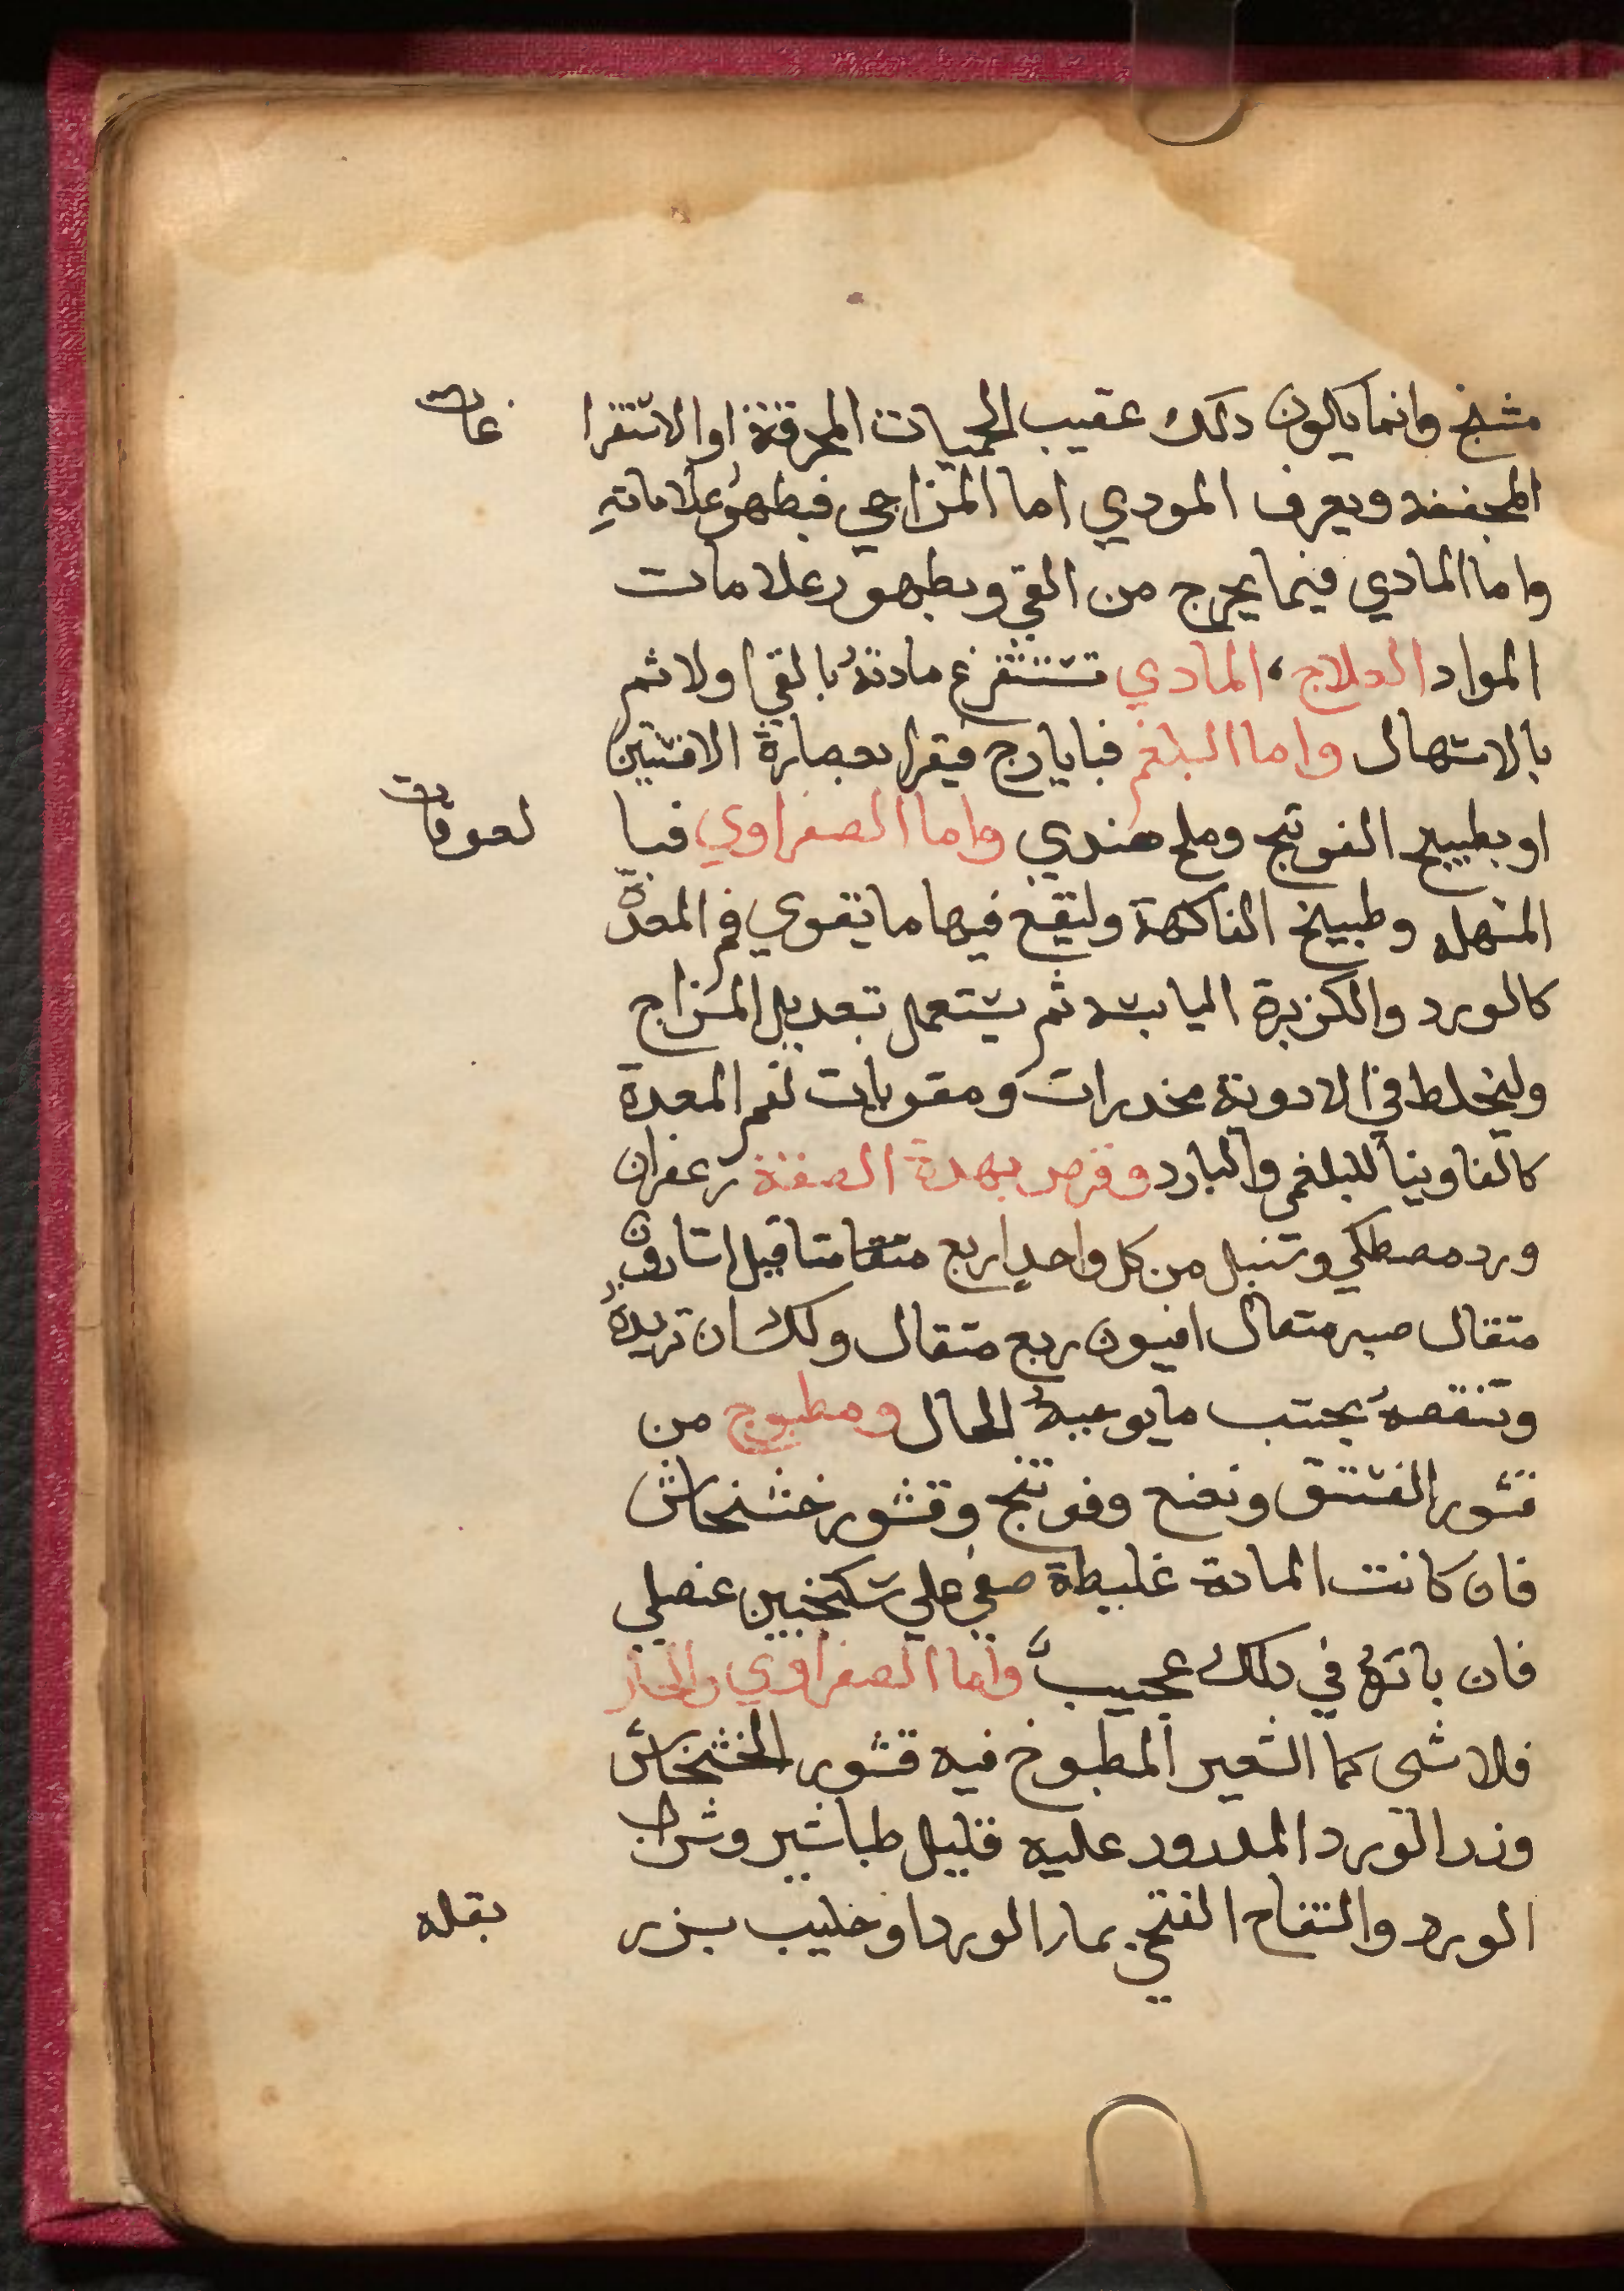 متشنج وانما يكون دلك عقيب الحميات المحرقة او الاستفرا غات
المجففه ويعرف المودي اما المزاجي فبظهور علاماتهِ
واما المادي فيما يخرج من القي وبظهور علامات
المواد العلاج، المادي تستفرغ مادتهُ بالقي اولا ثم
بالاسهال واما البلغم فبايارج فيقرا بعصارة الافسنتين
او بطبيخ الفوتنج وملح هندي واما الصفراوي فبا لعوقات
المسهله وطبيخ الفاكهة وليقع فيها ما يقوي فم المعدة
كالورد والكزبرة اليابسه ثم يستعمل تعديل المزاج
وليخلط في الادوية مخدرات ومقويات لفم المعدة
كالفاوينا للبلغمي والبارد وقرص بهدة الصفة زعفران
ورد مصطكي وسنبل من كل واحدٍ اربع مثاقيل اسارون
متقال صبر متقال افيون ربع متقال ولك ان تزيدهُ
وتنقصهُ بحسب ما يوجبهُ الحال ومطبوخ من
قشور الفستق ونعنع وفوتنج وقشور خشخاش
فان كانت المادة غليظة صفي علي سكنجبين عنصلي
فان باتهُ في دلك عجيبٌ واما الصفراوي والحار
فلا شى كما الشعير المطبوخ فيه قشور الخشخاش
وزر الورد المدرور عليه قليل طباشير وشراب
الورد والتفاح الفتحي بمار الورد او حليب بزر بقله